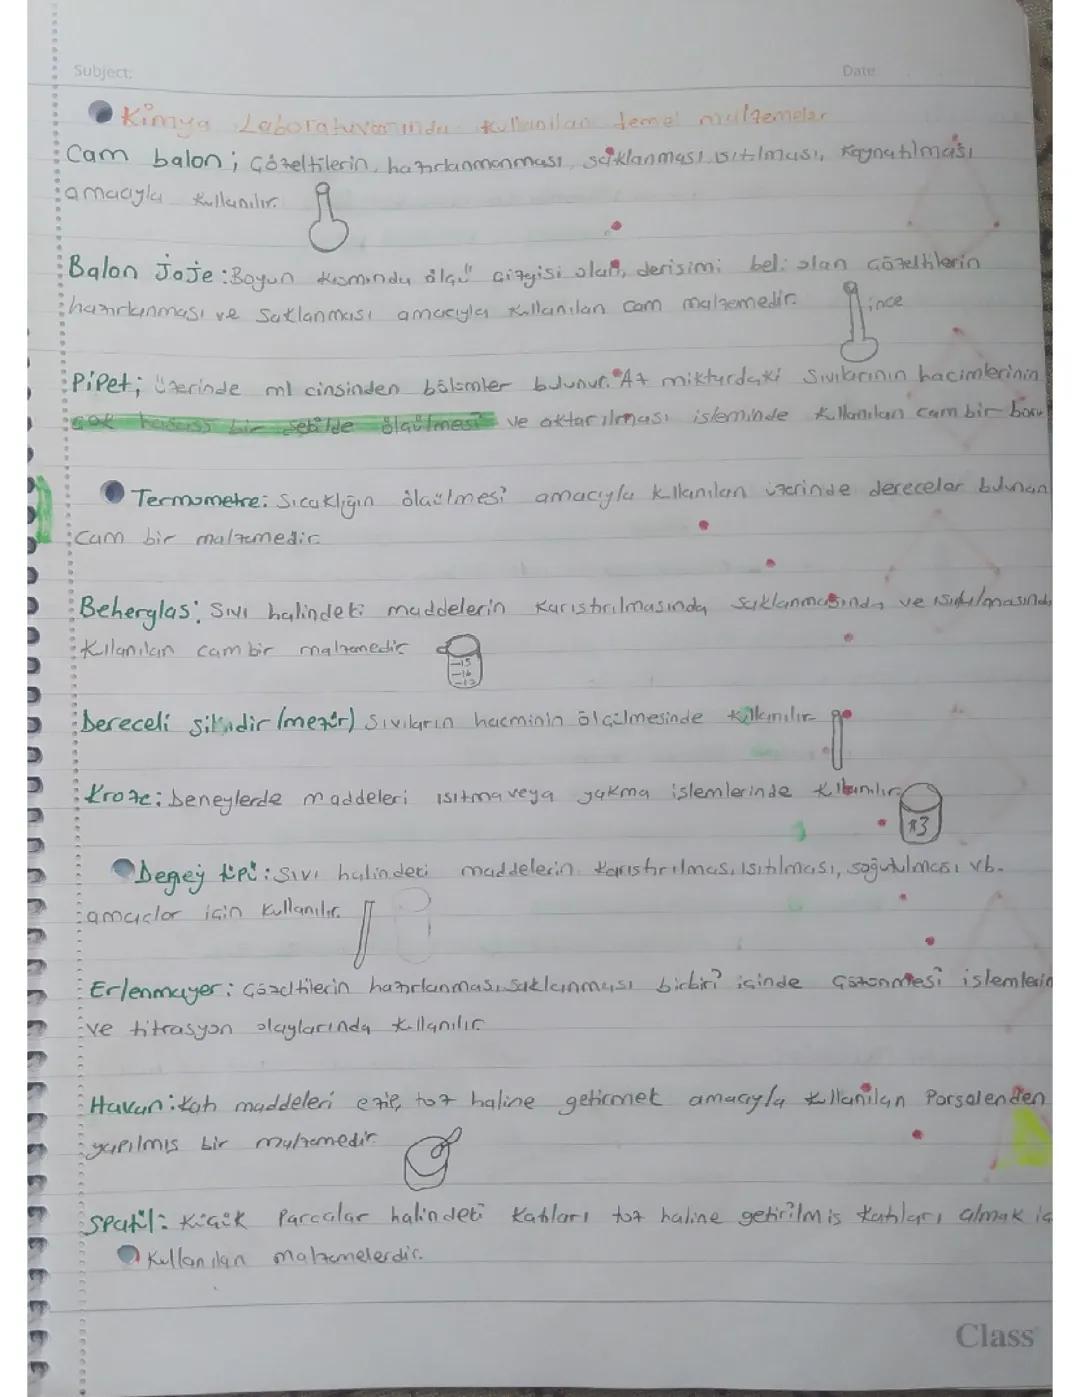 Subject:
Date
Kimya Laboratuvarında kullanılan temel malzemeler
Cam balon; Çözeltilerin, hazırlanmanması, saklanması, ısıtılması, kaynatılması
amacıyla kullanılır.
Balon joje: Boyun kısmında ölçü çizgisi olan, derişimi beli olan çözeltilerin
hazırlanması ve saklanması amacıyla kullanılan cam malzemedir.
ince
Pipet; üzerinde ml cinsinden bölümler bulunur. Az miktardaki sıvılarının hacimlerinin
çok hasass bir şekilde ölçülmesi ve aktarılması işleminde kullanılan cam bir boru
Termometre: Sıcaklığın ölçülmesi amacıyla kllanılan üzerinde dereceler bulunan
cam bir malzemedir.
Beherglas: Sıvı halindeki maddelerin karıştırılmasında saklanmasında ve ısıtılmasında
kullanılan cam bir malzemedir
-15
-14
-13
Dereceli silindir (mezür) Sıvıların hacminin ölçülmesinde kullanılır
Kroze: Deneylerde maddeleri ısıtma veya yakma işlemlerinde kullanılır.
93
Deney tüpü: Sıvı halindeki maddelerin karıştırılması, ısıtılması, soğutulması vb.
amaçlar için kullanılır.
Erlenmayer: Çözeltilerin hazırlanması, saklanması birbiri içinde çözünmesi işlemlerin
ve titrasyon olaylarında kullanılır
Havan: Katı maddeleri ezip, toz haline getirmek amacıyla kullanılan Porselenden
yapılmış bir malzemedir
Spatül: Küçük Parçalar halindeki katıları toz haline getirilmiş katıları almak iç
kullanılan malzemelerdir.
Class